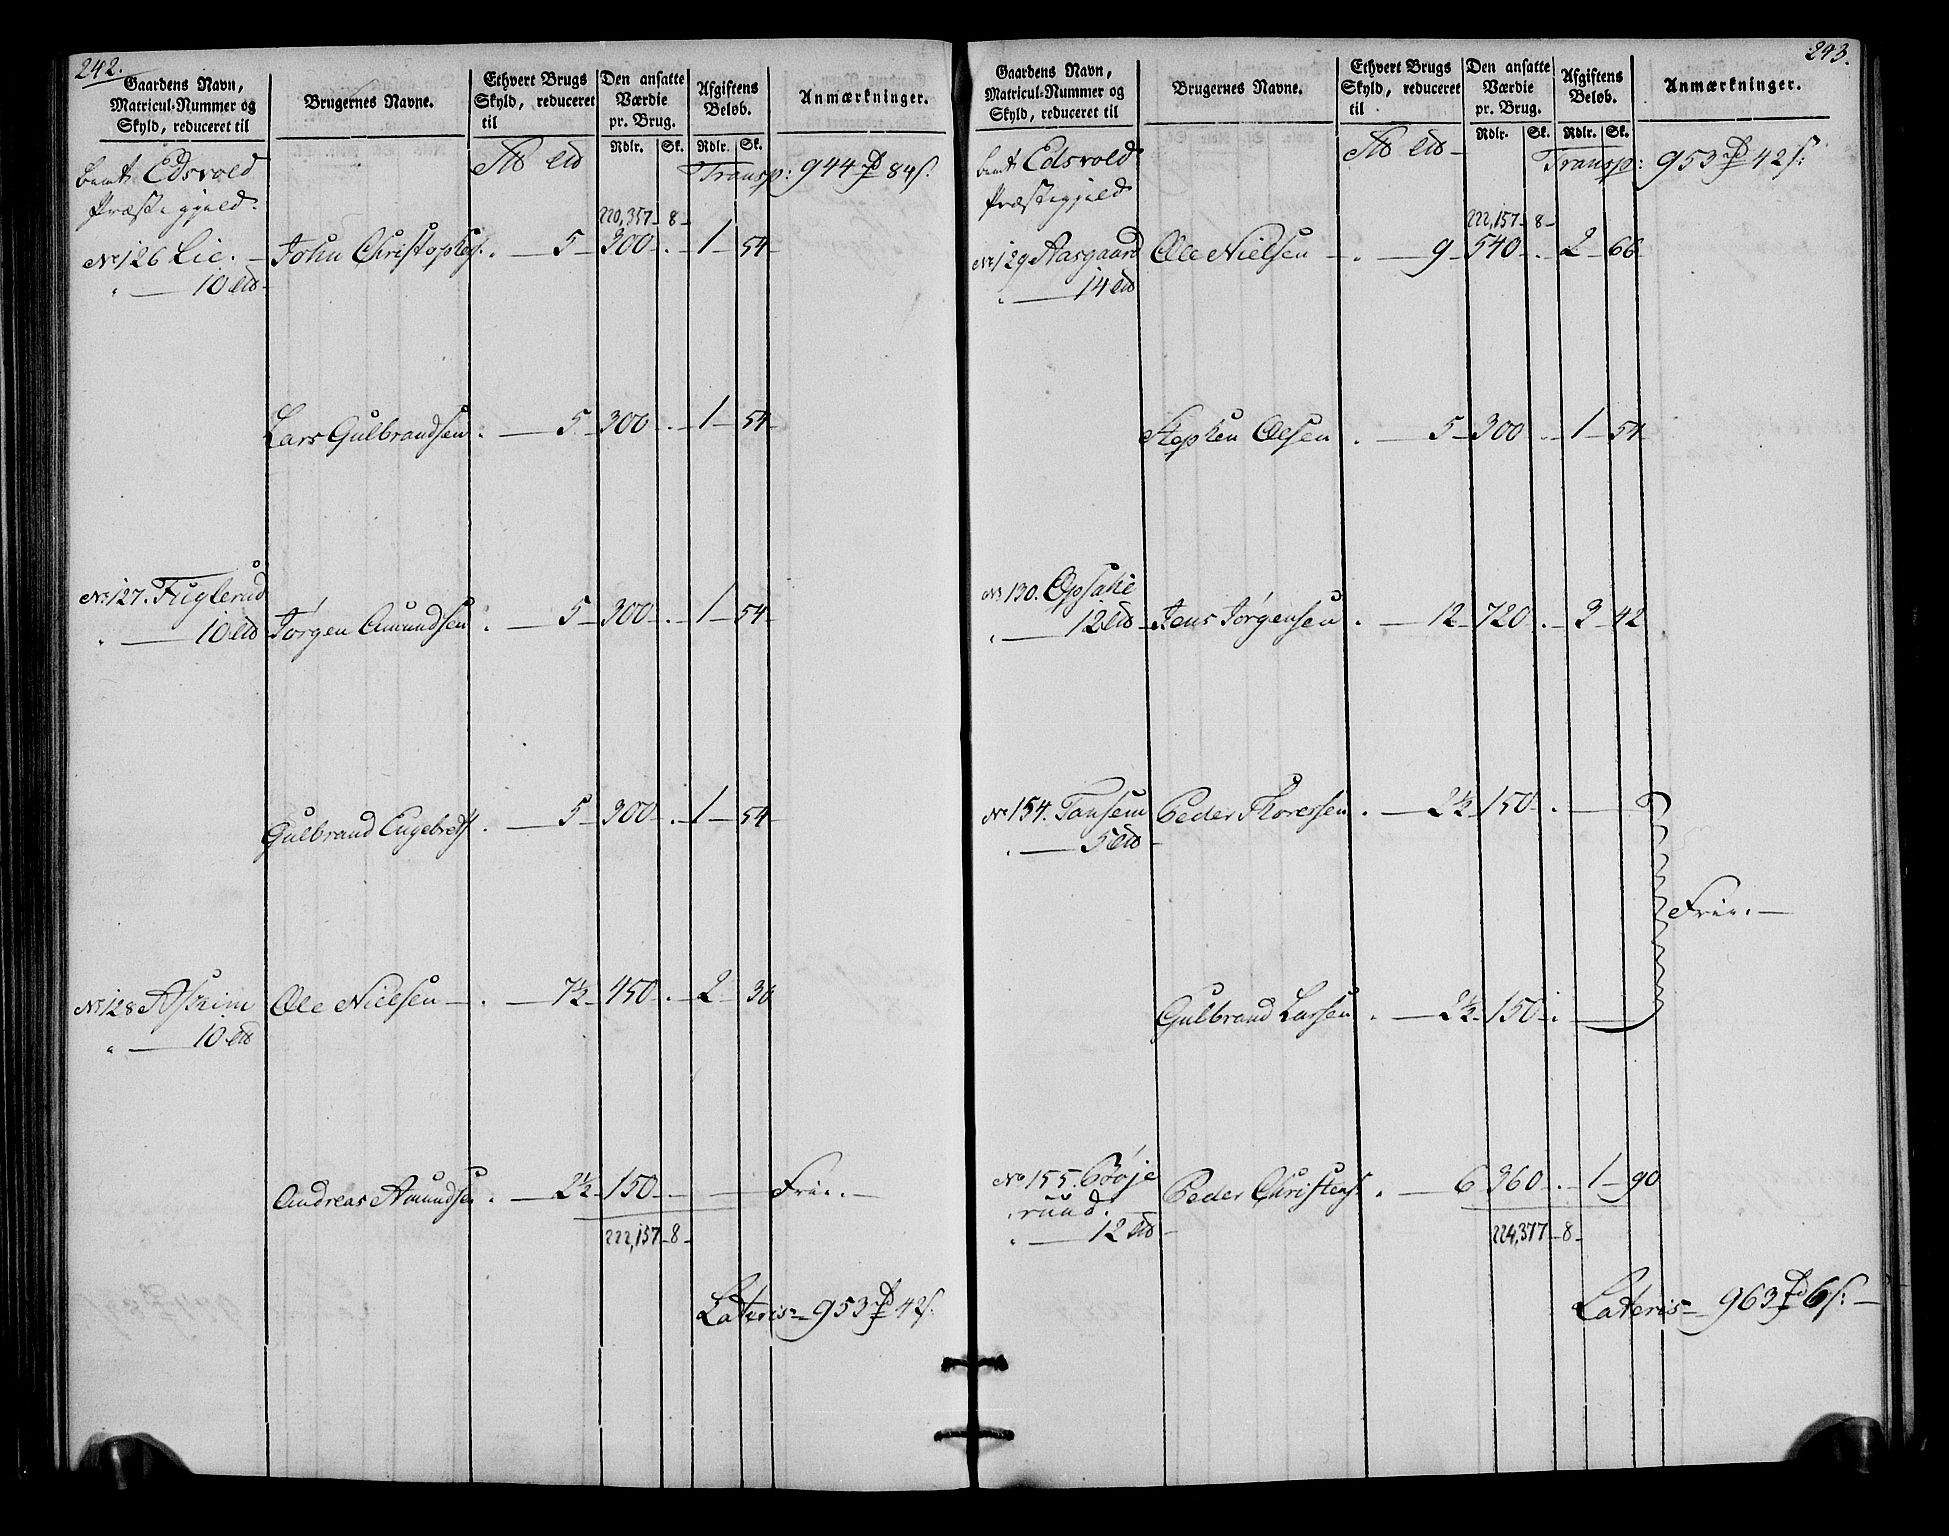 242.
Gaardens Navn, Matricul-Nummer og Skyld, reduceret til | Brugernes Navne. | Ethvert Brugs Skyld, reduceret til | Den ansatte Værdie pr. Brug. Rdlr. Sk. | Afgiftens Beløb. Rdlr. Sk. | Anmærkninger.
Edsvold Transp: 944 84 ſ.
Præstegjeld.
220,357 - 8 -
No 126 Lie. - John Christophers. . - 5 - 300 - . - 1 - 54 -
" - 10
Lars Gulbrandsen . - 5 - 300 - . - 1 - 54 -
No 127. Fuglerud
" - 10 Jørgen Amundsen . - 5 - 300 - . - 1 - 54 -
Gulbrand Engebrets. . - 5 - 300 - . - 1 - 54 -
No 128 Askim Ole Nielsen - . - 7½ - 450 - . - 2 - 30
" - 10
Andreas Amundsen . - 2½ - 150 - - - Frie. -
222,157 - 8 -
Lateris - 953 42 ſ.
243.
Gaardens Navn, Matricul-Nummer og Skyld, reduceret til | Brugernes Navne. | Ethvert Brugs Skyld, reduceret til | Den ansatte Værdie pr. Brug. Rdlr. Sk. | Afgiftens Beløb. Rdlr. Sk. | Anmærkninger.
Edsvold Transp: 953 42 ſ:
Præstegjeld
222,157 - 8 -
No 129 Aasgaard Ole Nielsen - . - 9 - 540 - . - 2 - 66
" - 14
Stephen Olsen . - 5 - 300 . - 1 - 54
No 130. Opsahl
" - 12 Jens Jørgensen . - 12 - 720 . - 3 - 42
No 154. Tansem Peder Thoresen . - 2½ - 150 - . -
" - 5
Frie. -
Gulbrand Larsen . - 2½ - 150 - . -
No 155. Bøje
rud. Peder Christens. . - 6 360 - . - 1 - 90
" - 12
224,377 - 8 -
Lateris - 963 6 ſ: -